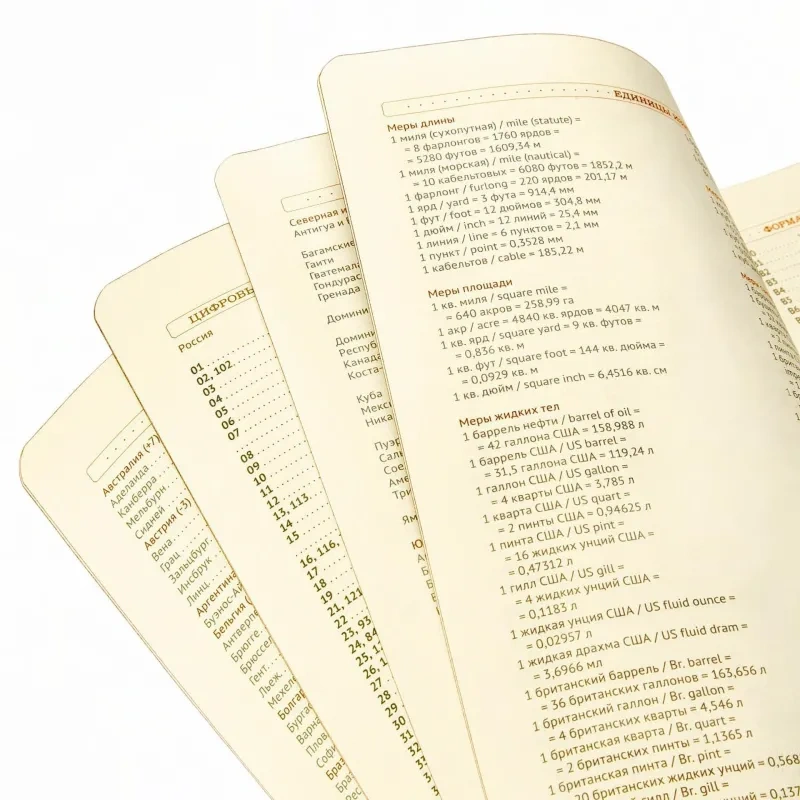 Австралия (+7)
Аделаида
Канберра
Мельбурн
Сидней
Австрия (-3)
Вена
Грац
Зальцбург
Инсбрук
Линц
Аргентина
Буэнос-Ай
Бельгия (
Антверпе
Брюгге
Брюссел
Гент
Льеж
Мехеле
Болгар
Бургас
Варна
Плов
Софи
Браз
Рес
ЦИФРОВЫ
Россия
01
02, 102
03
04
05
06
07
08
09
10
11
12
13, 113
14
15
16, 116,
17
18
19
21, 121
22
23, 93
24, 84
25, 1
26, 1
27
28
29
30
31
32
33
3
Северная и
Антигуа и
Багамские
Гаити
Гватемала
Гондурас
Гренада
Домини
Домини
Респуб
Канада
Коста-
Куба
Мекс
Ника
Пуэр
Саль
Сое
Аме
Три
Ям
Ю
ЕДИНИЦЫ И
Меры длины
1 миля (сухопутная) / mile (statute) =
= 8 фарлонгов = 1760 ярдов =
= 5280 футов = 1609,34 м
1 миля (морская) / mile (nautical) =
= 10 кабельтовых = 6080 футов = 1852,2 м
1 фарлонг / furlong = 220 ярдов = 201,17 м
1 ярд / yard = 3 фута = 914,4 мм
1 фут / foot = 12 дюймов = 304,8 мм
1 дюйм / inch = 12 линий = 25,4 мм
1 линия / line = 6 пунктов = 2,1 мм
1 пункт / point = 0,3528 мм
1 кабельтов / cable = 185,22 м
Меры площади
1 кв. миля / square mile =
= 640 акров = 258,99 га
1 акр / acre = 4840 кв. ярдов = 4047 кв. м
1 кв. ярд / square yard = 9 кв. футов =
= 0,836 кв. м
1 кв. фут / square foot = 144 кв. дюйма =
= 0,0929 кв. м
1 кв. дюйм / square inch = 6,4516 кв. см
Меры жидких тел
1 баррель нефти / barrel of oil =
= 42 галлона США = 158,988 л
1 баррель США / US barrel =
= 31,5 галлона США = 119,24 л
1 галлон США / US gallon =
= 4 кварты США = 3,785 л
1 кварта США / US quart =
= 2 пинты США = 0,94625 л
1 пинта США / US pint =
= 16 жидких унций США =
= 0,47312 л
1 гилл США / US gill =
= 4 жидких унций США =
= 0,1183 л
1 жидкая унция США / US fluid ounce =
= 0,02957 л
1 жидкая драхма США / US fluid dram =
= 3,6966 мл
1 британский баррель / Br. barrel =
= 36 британских галлонов = 163,656 л
1 британский галлон / Br. gallon =
= 4 британских кварты = 4,546 л
1 британская кварта / Br. quart =
= 2 британских пинты = 1,1365 л
1 британская пинта / Br. pint =
= 20 британских жидких унций = 0,568
гилл / Br. gill =
= 0,137
ФОРМА
B2
B3
B4
B5